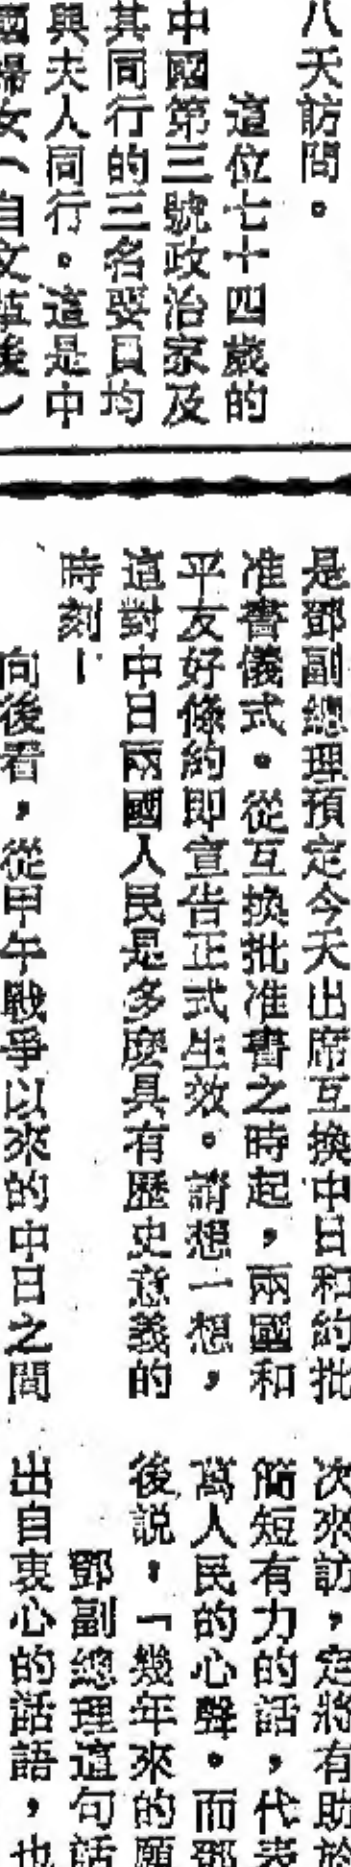 八天訪問。
這位七十四歲的
中國第三號政治家及
其同行的三名要員均
與夫人同行。這是中
國婦女（自文革後）
是鄧副總理預定今天出席互換中日和約批
准書儀式。從互換批准書之時起，兩國和
平友好條約即宣告正式生效。請想一想，
這對中日兩國人民是多麼具有歷史意義的
時刻！
向後看，從甲午戰爭以來的中日之間
次來訪，定將有助於
簡短有力的話，代表
萬人民的心聲。而鄧
後説，「幾年來的願
鄧副總理這句話
出自衷心的話語，也